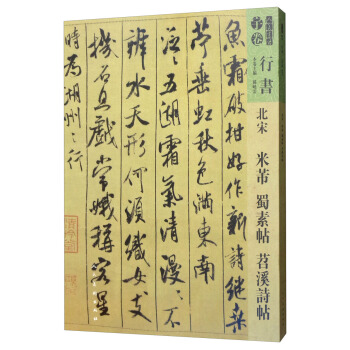 行書
北宋 米芾 蜀素帖 苕溪詩帖
魚霜破柑好作新詩継桑
苧垂虹秋色滿東南
泛〻五湖霜氣清漫〻不
辨水天形何須織女支
機石且戲常娥稱客星
時為湖州之行